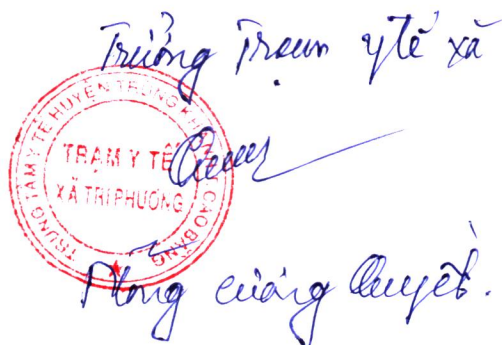 Trưởng Trạm y tế xã
TRUNG TÂM Y TẾ HUYỆN TRÙNG KHÁNH T. CAO BẰNG
TRẠM Y TẾ
XÃ TRI PHƯƠNG
Nông cường Quyết.